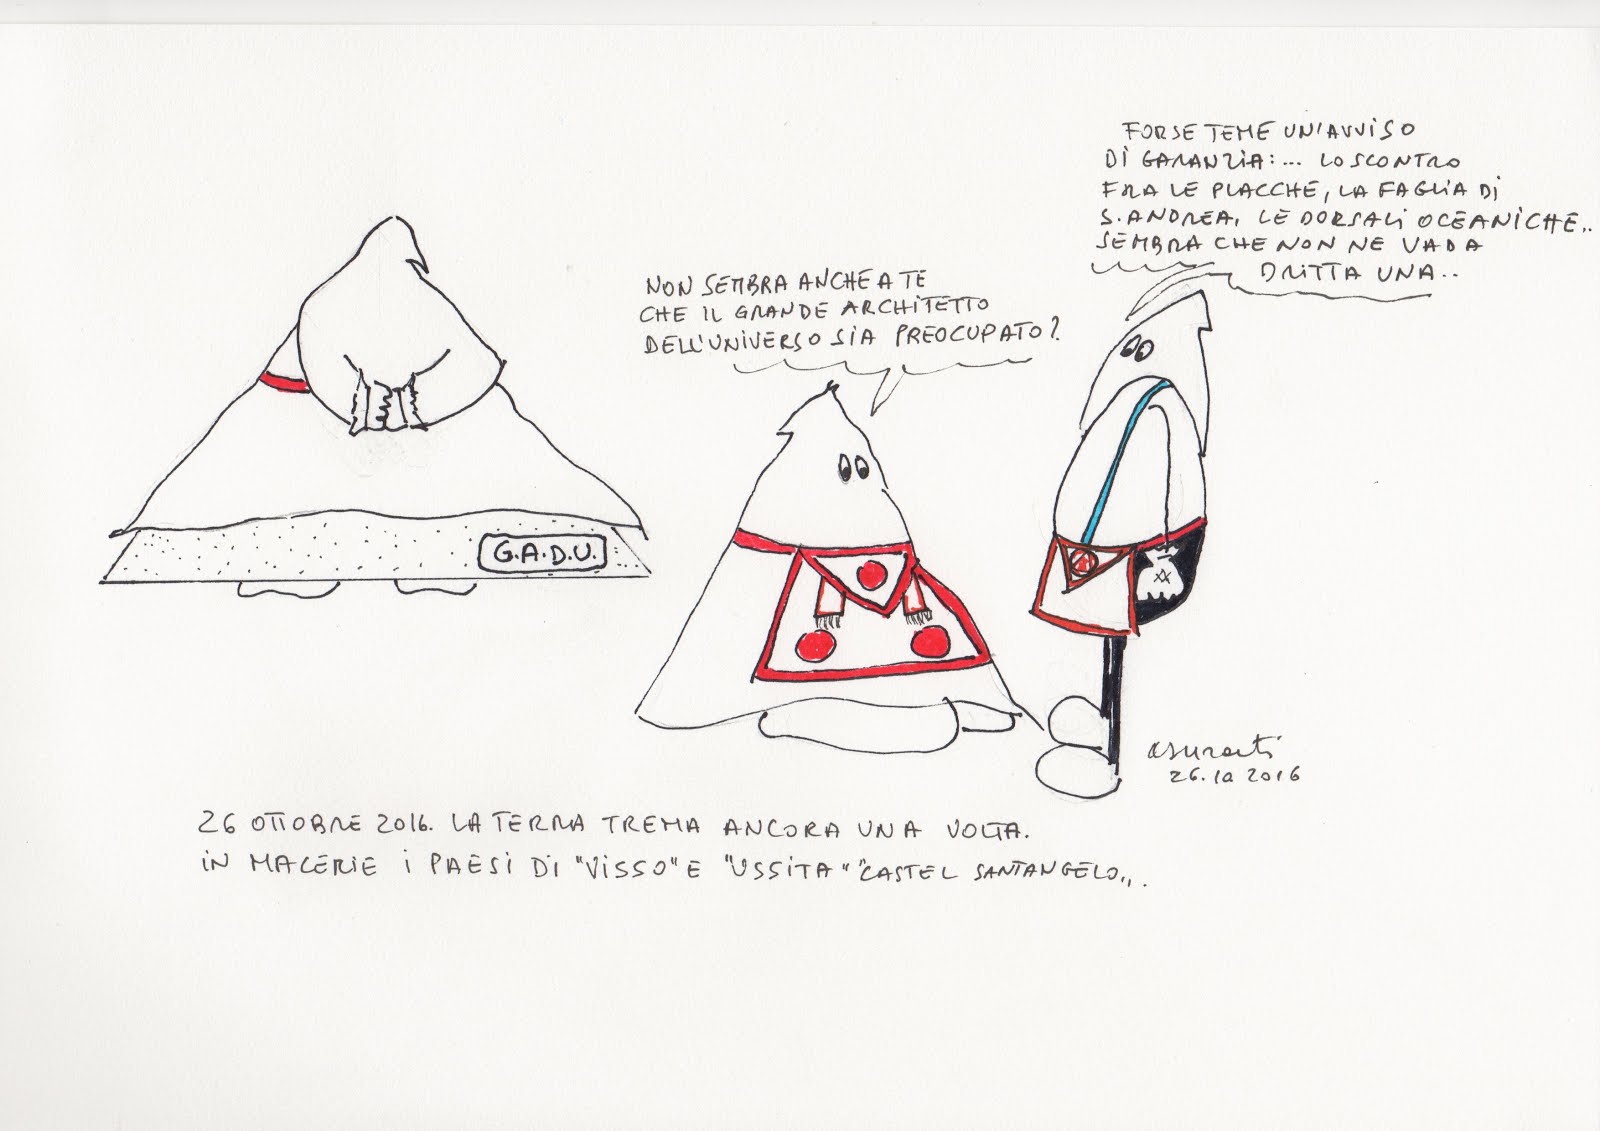 FORSE TEME UN'AVVISO
DI GARANZIA:... LO SCONTRO
FRA LE PLACCHE, LA FAGLIA DI
S. ANDREA, LE DORSALI OCEANICHE..
SEMBRA CHE NON NE VADA
DRITTA UNA..
NON SEMBRA ANCHE A TE
CHE IL GRANDE ARCHITETTO
DELL'UNIVERSO SIA PREOCUPATO?
G.A.D.U.
26.10 2016
26 OTTOBRE 2016. LA TERRA TREMA ANCORA UNA VOLTA.
IN MACERIE I PAESI DI "VISSO" E "USSITA" "CASTEL SANTANGELO...